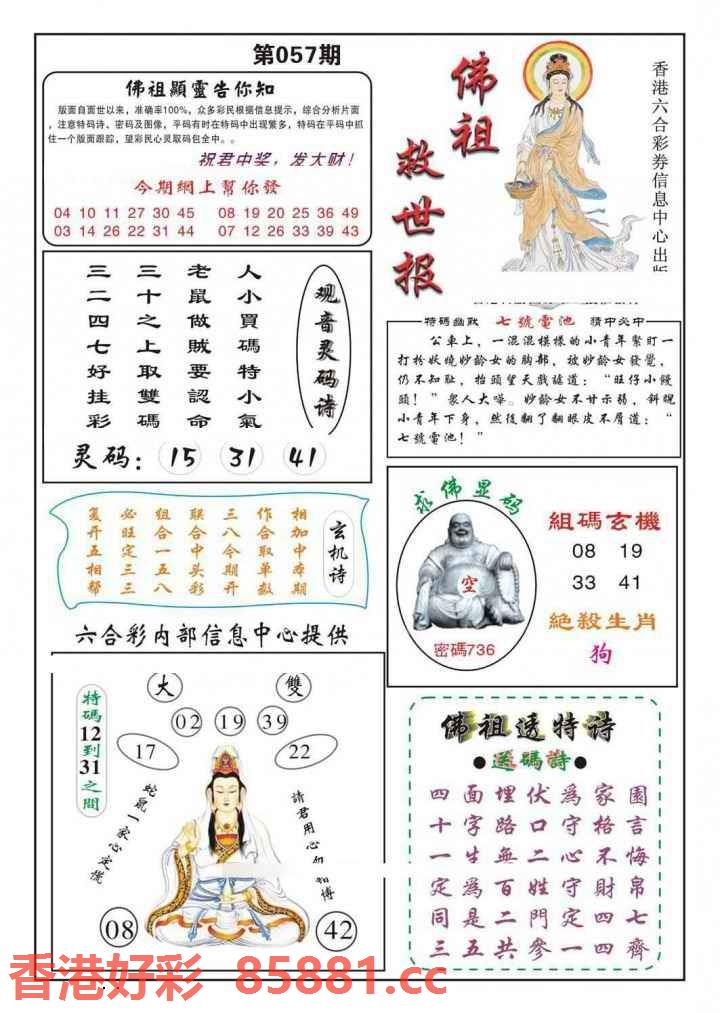 第057期
佛祖顯靈告你知
版面自面世以来，准确率100%，众多彩民根据信息提示，综合分析片面
，注意特码诗、密码及图像，平码有时在特码中出现繁多，特码在平码中抓
住一个版面跟踪，望彩民心灵取码包全中。。
祝君中奖，发大财！
今期網上幫你發
04 10 11 27 30 45 08 19 20 25 36 49
03 14 26 22 31 44 07 12 26 33 39 43
佛祖
救世报
香港六合彩券信息中心出版
人小買碼特小氣
老鼠做賊要認命
三十之上取雙碼
三二四七好挂彩
观音灵码诗
灵码：15 31 41
特碼幽默 七號電池 猜中必中
公車上，一混混模樣的小青年緊盯一
打扮妖嬈妙齡女的胸部，被妙齡女發覺，
仍不知耻，抬頭望天戲謔道：“旺仔小饅
頭！”衆人大嘩。妙齡女不甘示弱，斜睨
小青年下身，然後翻了翻眼皮不屑道：“
七號電池！”
相加中本期
作合取单数
三八今期开
联合中头彩
组合一五八
必旺定三三
复开五相帮
玄机诗
六合彩内部信息中心提供
求佛显码
空
密碼736
組碼玄機
08 19
33 41
絕殺生肖
狗
特碼12到31之間
大 雙
02 19 39
17 22
蛇鼠一家心定慌
請君用心
08 42
佛祖透特诗
●送碼詩●
四面埋伏為家園
十字路口守格言
一生無二心不悔
定為百姓守財帛
同是二門定四七
三五共參一四齊
香港好彩 85881.cc